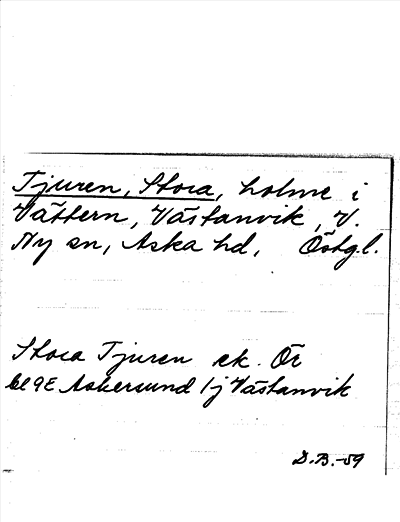 Tjuren, Stora, holme i
Vättern, Västanvik, V.
Ny sn, Aska hd, Östgl.
Stora Tjuren ek. Ör
bl 9E Askersund 1j Västanvik
D.B.-59